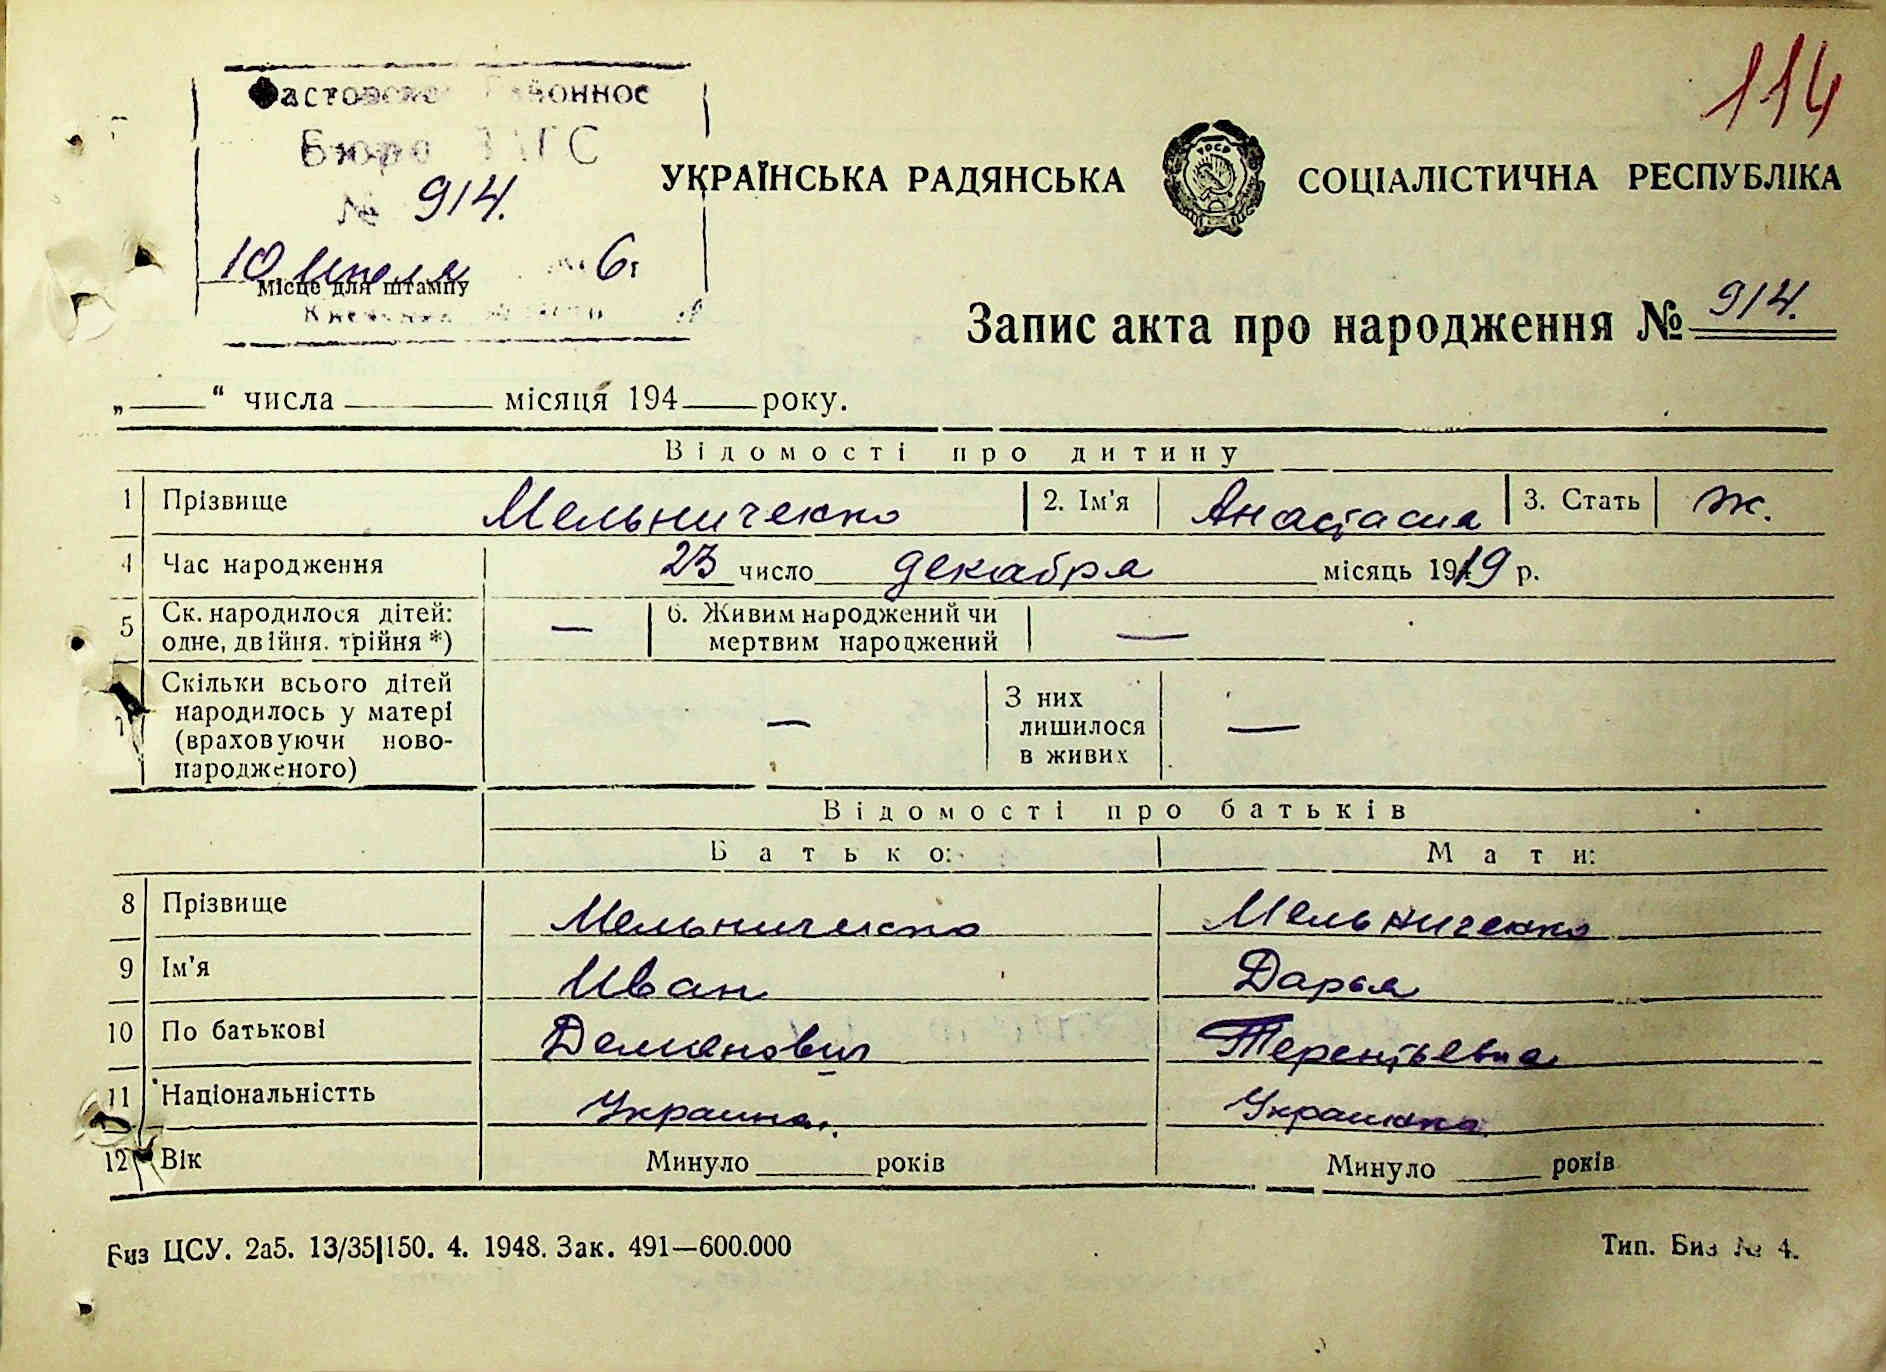 114
Фастовское Районное
Бюро ЗАГС
№ 914.
10 Июля 6г
Місце для штампу
УКРАЇНСЬКА РАДЯНСЬКА СОЦІАЛІСТИЧНА РЕСПУБЛІКА
УРСР
Запис акта про народження № 914.
„ “ числа місяця 194 року.
Відомості про дитину
1 Прізвище Мельниченко 2. Ім'я Анастасия 3. Стать ж.
4 Час народження 23 число декабря місяць 1919 р.
5 Ск. народилося дітей: — 6. Живим народжений чи —
одне, двійня. трійня *) мертвим народжений
7 Скільки всього дітей З них
народилось у матері — лишилося —
(враховуючи ново- в живих
народженого)
Відомості про батьків
Батько: Мати:
8 Прізвище Мельниченко Мельниченко
9 Ім'я Иван Дарья
10 По батькові Демянович Терентьевна
11 Національністть Украинец. Украинка
12 Вік Минуло років Минуло років
Биз ЦСУ. 2а5. 13/35|150. 4. 1948. Зак. 491—600.000 Тип. Биз № 4.